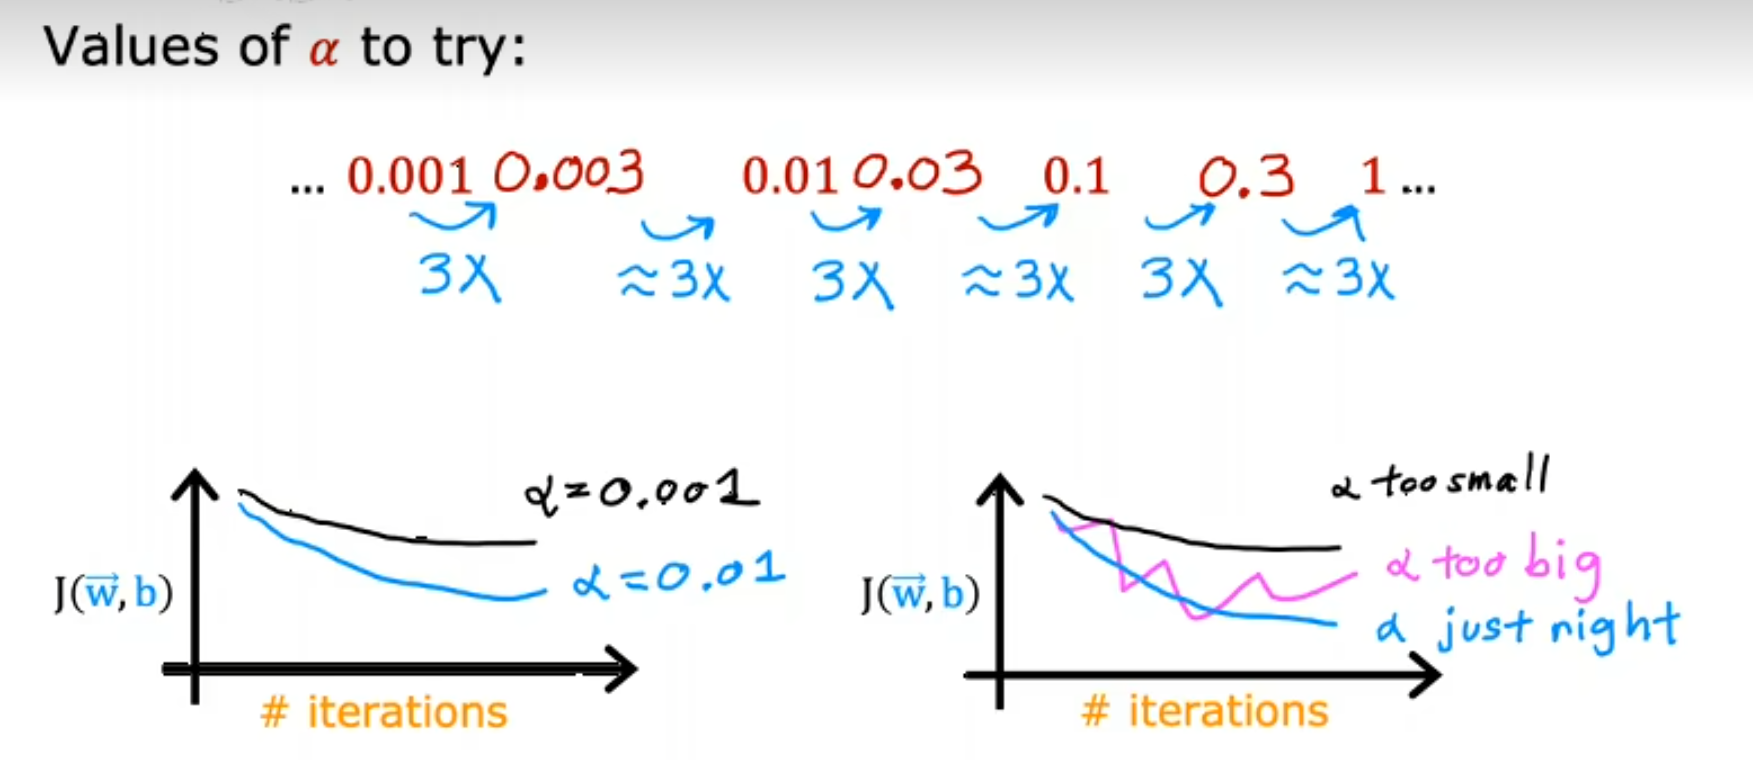 Values of α to try:
... 0.001 0.003 0.01 0.03 0.1 0.3 1 ...
3X ≈3X 3X ≈3X 3X ≈3X
α=0.001
α=0.01
J(w⃗, b)
# iterations
α too small
α too big
α just right
J(w⃗, b)
# iterations